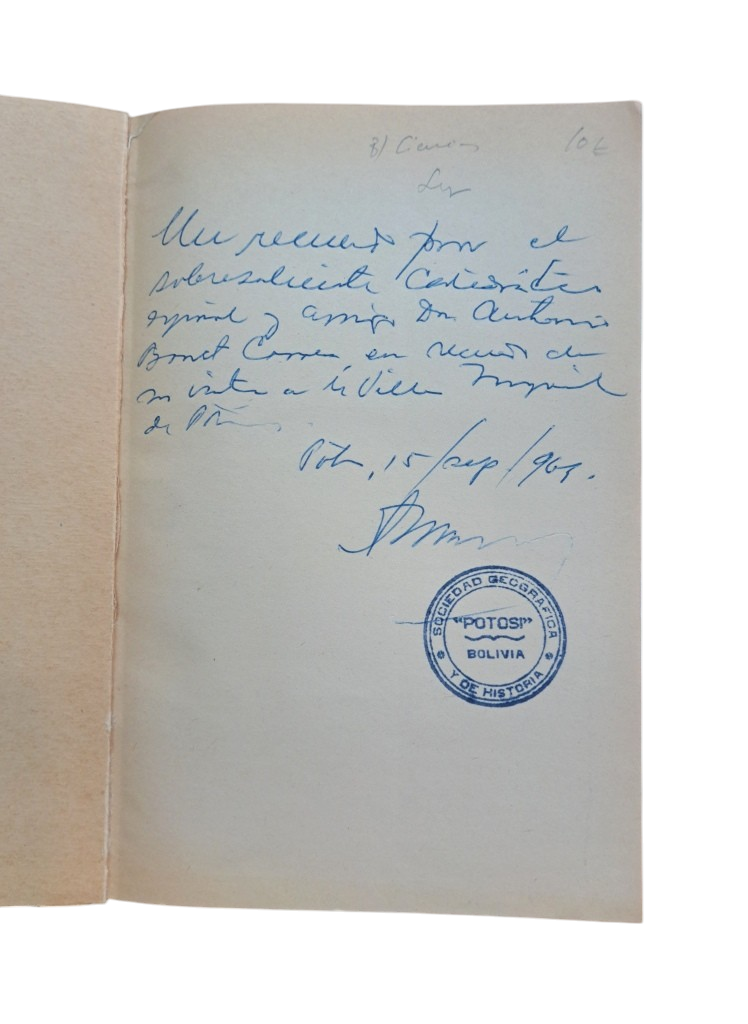 B/ Ciencias
10 €
Un recuerdo para el
sobresaliente Catedrático
español y amigo Don Antonio
Bonet Correa en recuerdo de
su visita a la Villa Imperial
de Potosí.
Pot., 15/sep/969.
SOCIEDAD GEOGRAFICA
"POTOSI"
BOLIVIA
Y DE HISTORIA